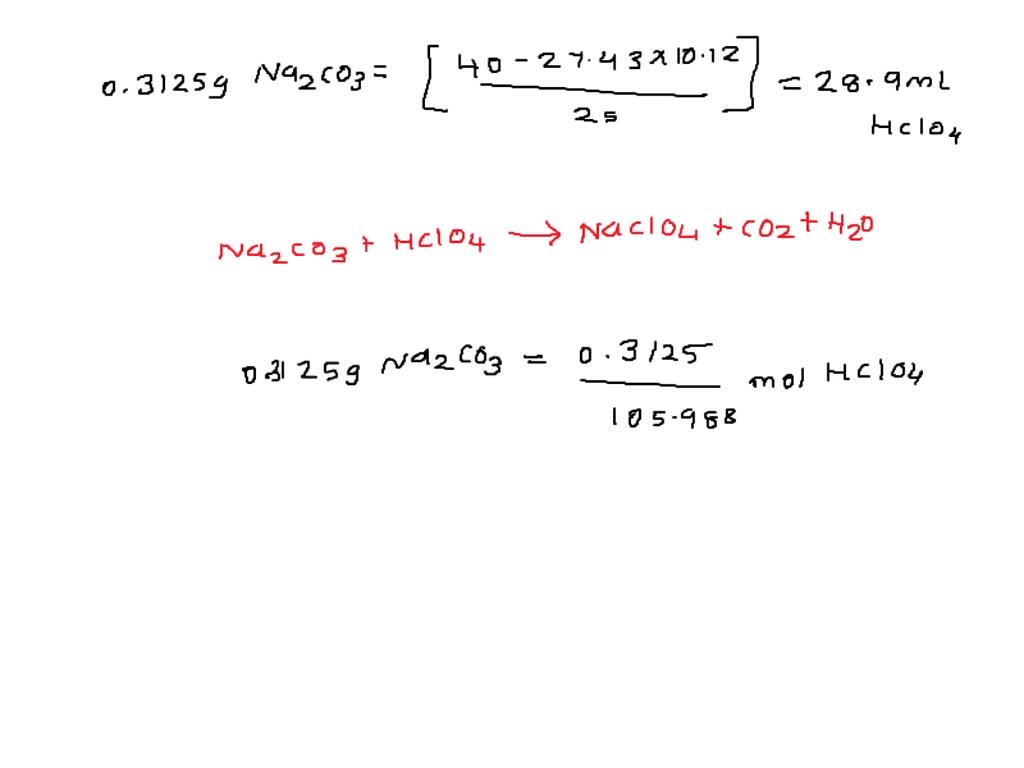 0.3125g Na₂CO₃ = [ 40 - 27.43 × 10.12 / 25 ] = 28.9mL
HClO₄
Na₂CO₃ + HClO₄ → NaClO₄ + CO₂ + H₂O
0.3125g Na₂CO₃ = 0.3125 / 105.988 mol HClO₄